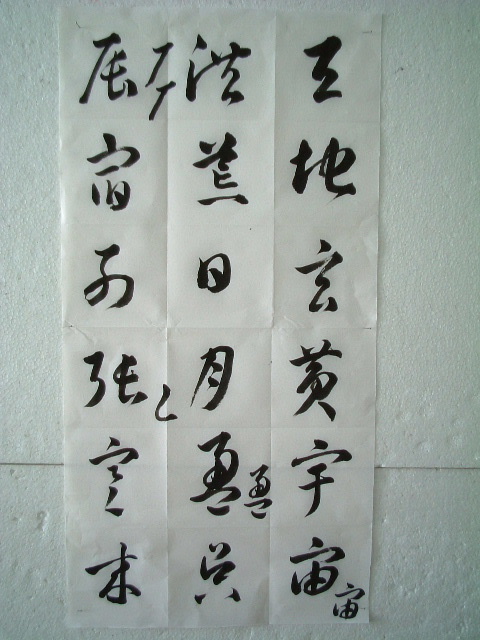 天地玄黄宇宙宙
洪荒日月盈盈昃
辰宿列张寒来